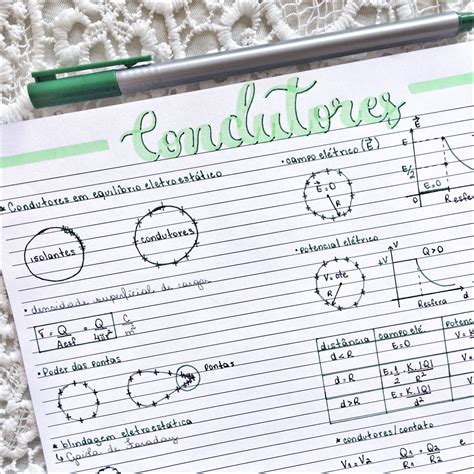 Condutores
★ Condutores em equilíbrio eletroestático
isolantes
condutores
• densidade superficial de cargas
σ = Q/Aesf = Q/4πr² C/m²
• Poder das pontas
Pontas
★ blindagem eletroestática
↳ Gaiola de Faraday
• campo elétrico (E⃗)
E⃗=0
R
E⃗
E
E/2
E=0
R esfera
• potencial elétrico
V=cte
R
+V
V
Q>0
R esfera
d
distância | campo elé. | potenc
d<R | E=0 | V=
d=R | E=1/2 K.|Q|/R²
d>R | E=K.|Q|/d² | V=
• condutores/contato
V₁=V₂ Q₁/R₁ = Q₂/R₂ e